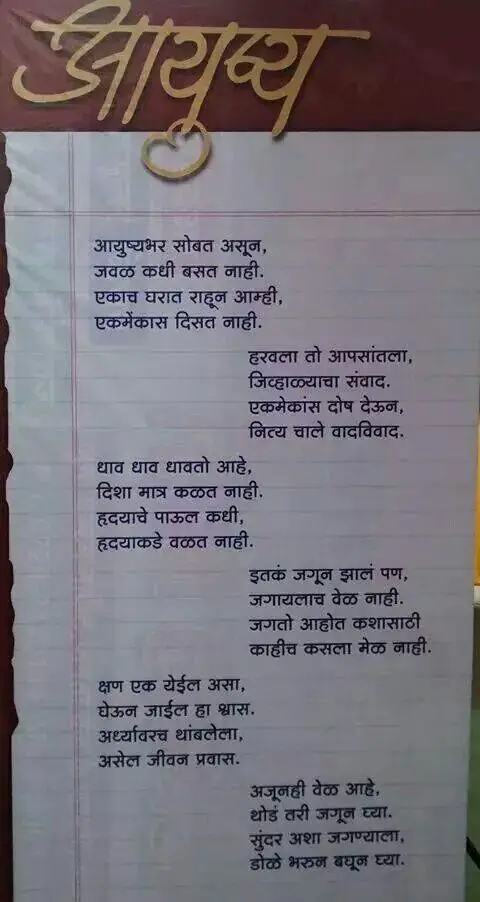 आयुष्य
आयुष्यभर सोबत असून,
जवळ कधी बसत नाही.
एकाच घरात राहून आम्ही,
एकमेंकास दिसत नाही.
हरवला तो आपसांतला,
जिव्हाळ्याचा संवाद.
एकमेकांस दोष देऊन,
नित्य चाले वादविवाद.
धाव धाव धावतो आहे,
दिशा मात्र कळत नाही.
हृदयाचे पाऊल कधी,
हृदयाकडे वळत नाही.
इतकं जगून झालं पण,
जगायलाच वेळ नाही.
जगतो आहोत कशासाठी
काहीच कसला मेळ नाही.
क्षण एक येईल असा,
घेऊन जाईल हा श्वास.
अर्ध्यावरच थांबलेला,
असेल जीवन प्रवास.
अजूनही वेळ आहे,
थोडं तरी जगून घ्या.
सुंदर अशा जगण्याला,
डोळे भरुन बघून घ्या.